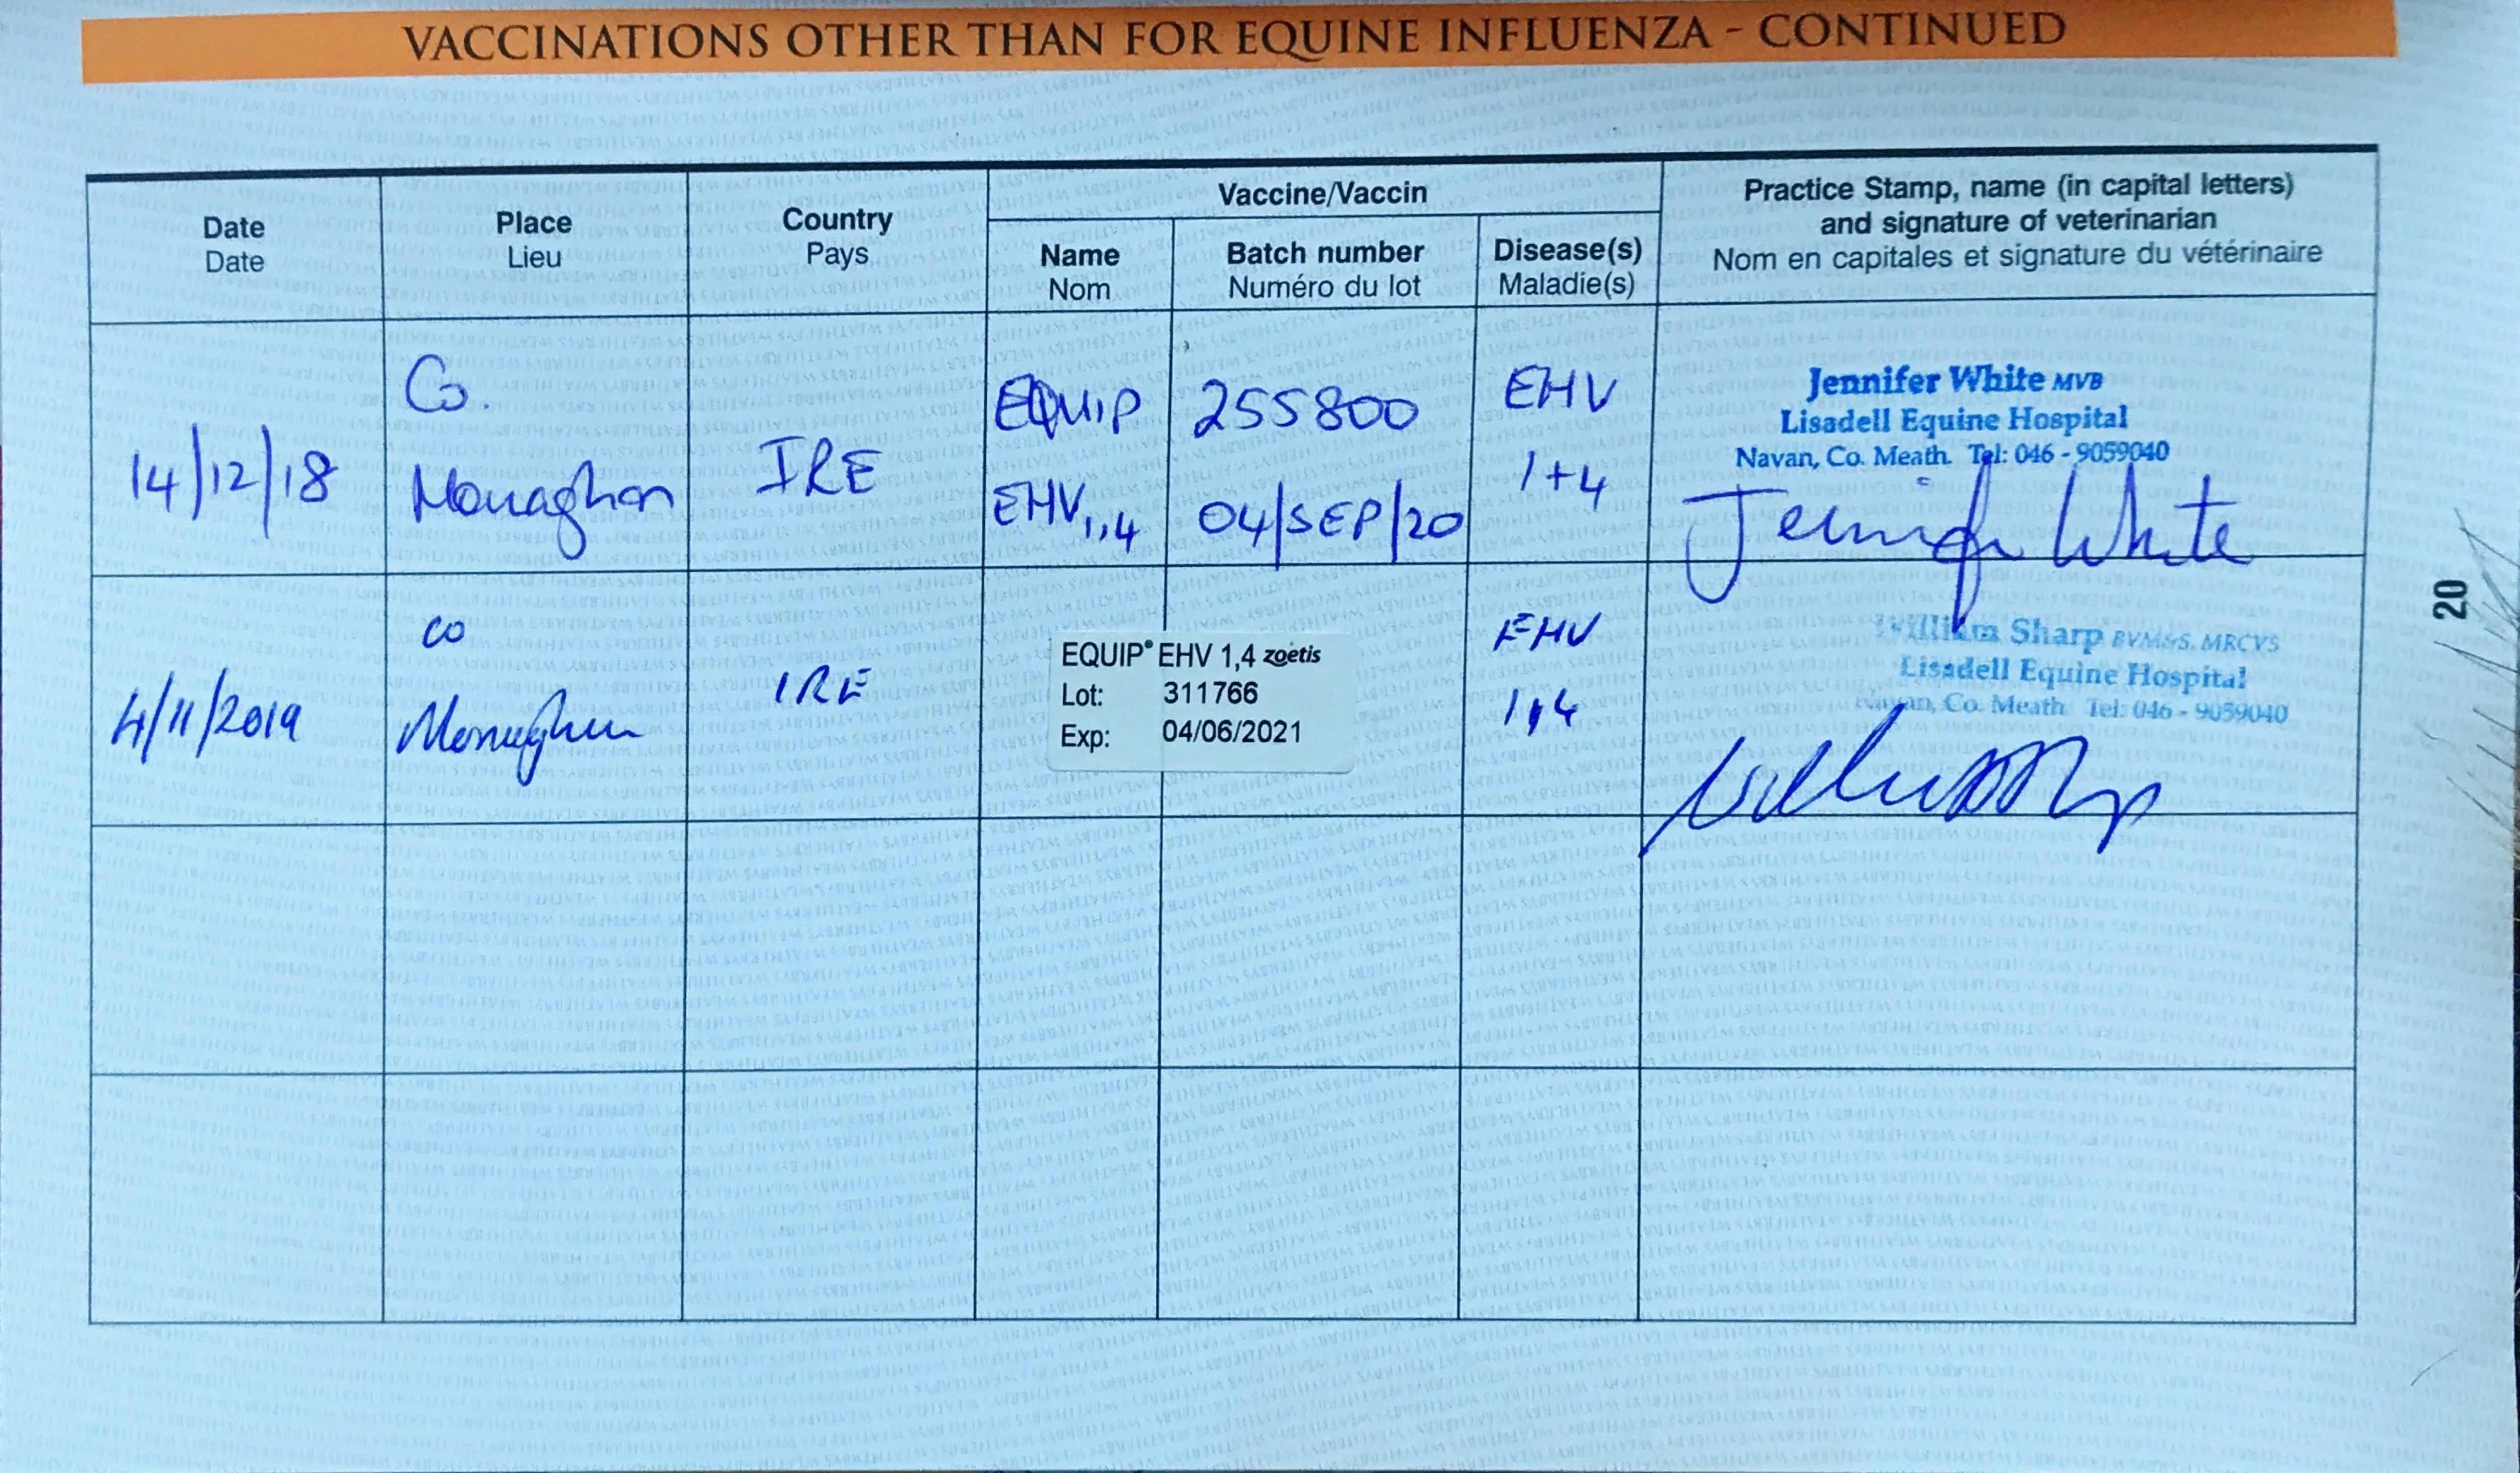 VACCINATIONS OTHER THAN FOR EQUINE INFLUENZA - CONTINUED
Date
Date
Place
Lieu
Country
Pays
Vaccine/Vaccin
Name
Nom
Batch number
Numéro du lot
Disease(s)
Maladie(s)
Practice Stamp, name (in capital letters)
and signature of veterinarian
Nom en capitales et signature du vétérinaire
14/12/18
Co.
Monaghan
IRE
EQUIP
EHV1,4
255800
04/SEP/20
EHV
1+4
Jennifer White MVB
Lisadell Equine Hospital
Navan, Co. Meath. Tel: 046 - 9059040
Jennifer White
4/11/2019
CO
Monaghan
IRE
EQUIP® EHV 1,4 zoetis
Lot: 311766
Exp: 04/06/2021
EHV
1,4
William Sharp BVM&S. MRCVS
Lisadell Equine Hospital
Navan, Co. Meath Tel: 046 - 9059040
20